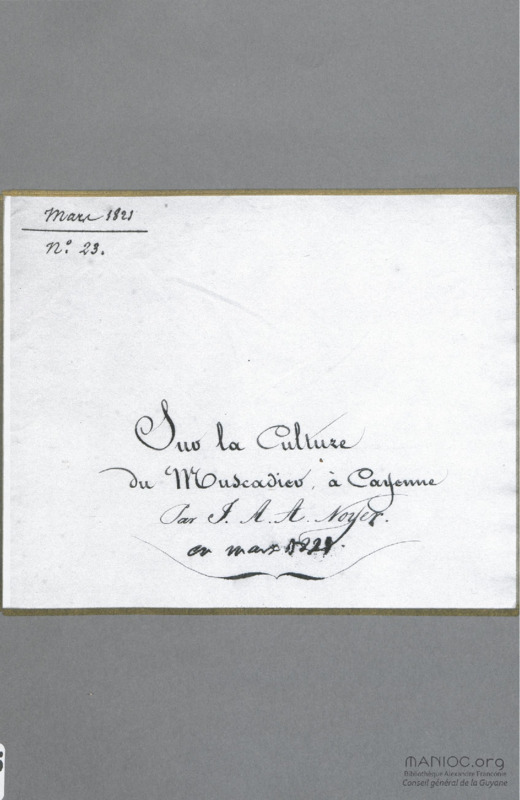 Mars 1821
N.º 23.
Sur la Culture
du Muscadier, à Cayenne
Par J. A. A. Noyer.
en mars 1821.
MANIOC.org
Bibliothèque Alexandre Franconie
Conseil général de la Guyane